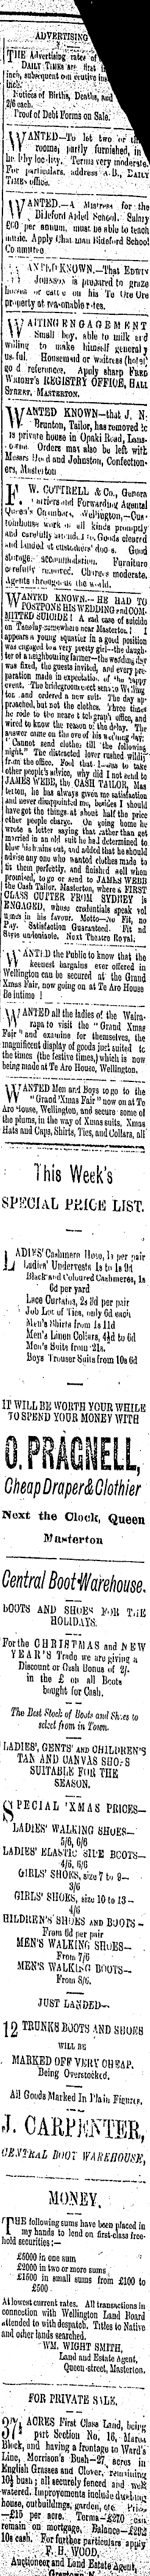 ADVERTISING
THE Advertising rates of
DAILY TIMES are
inch, subsequent
inch.
Notices of Births, Deaths, and
2/6 each.
Proof of Debt Forms on Sale.
WANTED—To let two
rooms, partly furnished,
Terms very moderate.
For particulars, address A.B., DAILY
TIMES office.
WANTED.—A Mistress for the
Bideford School. Salary
£10 per annum, must be able to teach
music. Apply Chairman Bideford School
Committee
WANTED KNOWN.—That EDWIN
JOHNSON is prepared to graze
horses or cattle on his Te Ore Ore
property at reasonable rates.
WAITING ENGAGEMENT
Small boy, able to milk and
willing to make himself generally
useful. Housemaid or waitress (hotel)
good references. Apply sharp FRED
WRIGHT'S REGISTRY OFFICE, HALL
STREET, MASTERTON.
WANTED KNOWN—that J. N.
Brunton, Tailor, has removed to
his private house in Opaki Road, Lans-
Orders may also be left with
Messrs Hood and Johnston, Confection-
ers, Masterton
F. W. COTTRELL & Co., General
Customs and Forwarding Agents
Queen's Chambers, Wellington,—Cus-
tomhouse work in all kinds promptly
and carefully attended to. Goods cleared
and landed at customers' doors. Good
storage accommodation. Furniture
carefully removed. Charges moderate.
Agents throughout the world.
WANTED KNOWN.—HE HAD TO
POSTPONE HIS WEDDING AND COM-
MITTED SUICIDE! A sad case of suicide
on Tuesday somewhere near Masterton! It
appears a young squatter in a good position
was engaged to a very pretty girl—the daugh-
ter of a neighbouring farmer—the wedding day
was fixed, the guests invited, and every pre-
paration made in expectation of the happy
event. The bridegroom elect sent to Welling-
ton and ordered a new suit. The day ap-
proached, but not the clothes. Three times
he rode to the nearest telegraph office, and
wired to know the reason of the delay. The
answer came on the eve of his wedding day:
"Cannot send clothes till the following
night." The distracted lover rushed wildly
from the office. Fool that I was to take
other people's advice, why did I not send to
JAMES WEBB, the CASH TAILOR, Mas-
terton, he has always given me satisfaction
and never disappointed me, besides I should
have got the things at about half the price
other people charge. On going home he
wrote a letter saying that rather than get
married in an old suit he had determined to
blow his brains out, and added that he should
advise any one who wanted clothes made to
fit them perfectly, and finished well when
promised, to go or send to JAMES WEBB
the Cash Tailor, Masterton, where a FIRST
CLASS CUTTER FROM SYDNEY is
ENGAGED, whose credentials speak vol
umes in his favour. Motto—No Fit, no
Pay. Satisfaction Guaranteed. Fit and
Style unmistake. Next Theatre Royal.
WANTED the Public to know that the
keenest bargains ever offered in
Wellington can be secured at the Grand
Xmas Fair, now going on at Te Aro House
Be in time!
WANTED all the ladies of the Waira-
rapa to visit the "Grand Xmas
Fair" and examine for themselves, the
magnificent display of goods just suited to
the times (the festive times,) which is now
being made at Te Aro House, Wellington.
WANTED Men and Boys to go to the
"Grand Xmas Fair" now on at Te
Aro House, Wellington, and secure some of
the plums, in the way of Xmas suits, Xmas
Hats and Caps, Shirts, Ties, and Collars, all
This Week's
SPECIAL PRICE LIST.
LADIES' Cashmere Hose, 1s per pair
Ladies' Undervests 1s to 1s 9d
Black and Coloured Cashmeres, 1s
6d per yard
Lace Curtains, 2s 3d per pair
Job Lot of Ties, only 6d each
Men's Shirts from 1s 11d
Men's Linen Collars, 4½d to 6d
Men's Suits from 21s.
Boys Trouser Suits from 10s 6d
IT WILL BE WORTH YOUR WHILE
TO SPEND YOUR MONEY WITH
O. PRAGNELL,
Cheap Draper & Clothier
Next the Clock, Queen
Masterton
Central Boot Warehouse.
BOOTS AND SHOES FOR THE
HOLIDAYS.
For the CHRISTMAS and NEW
YEAR'S Trade we are giving a
Discount or Cash Bonus of 2/-
in the £ on all Boots
bought for Cash.
The Best Stock of Boots and Shoes to
select from in Town.
LADIES', GENTS' AND CHILDREN'S
TAN AND CANVAS SHOES
SUITABLE FOR THE
SEASON.
SPECIAL 'XMAS PRICES—
LADIES' WALKING SHOES—
5/6, 6/6
LADIES' ELASTIC SIDE BOOTS—
4/6, 6/6
GIRLS' SHOES, size 7 to 9—
3/6
GIRLS' SHOES, size 10 to 13—
4/6
HILDREN'S SHOES AND BOOTS—
From 6d per pair
MEN'S WALKING SHOES—
From 7/6
MEN'S WALKING BOOTS—
From 8/6.
JUST LANDED—
12 TRUNKS BOOTS AND SHOES
WILL BE
MARKED OFF VERY CHEAP.
Being Overstocked.
All Goods Marked In Plain Figures.
J. CARPENTER,
CENTRAL BOOT WAREHOUSE,
MONEY.
THE following sums have been placed in
my hands to lend on first-class free-
hold securities:—
£5000 in one sum
£2000 in two or more sums
£1500 in small sums from £100 to
£500
At lowest current rates. All transactions in
connection with Wellington Land Board
attended to with despatch. Titles to Native
and other lands searched.
WM. WIGHT SMITH,
Land and Estate Agent,
Queen-street, Masterton.
FOR PRIVATE SALE.
37¼ ACRES First Class Land, being
part Section No. 16,
Block, and having a frontage to Ward's
Line, Morrison's Bush—27 acres in
English Grasses and Clover, remaining
10¼ bush; all securely fenced and well
watered. Improvements include dwelling
house, outbuildings, garden, etc. Price
—£15 per acre. Terms—£270 can
remain on mortgage. Balance—£292
10s cash. For further particulars apply
F. H. WOOD,
Auctioneer and Land Estate Agent,